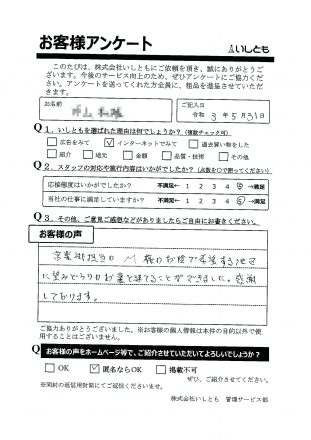 お客様アンケート
いしとも
このたびは、株式会社いしともにご依頼を頂き、誠にありがとうご
ざいます。今後のサービス向上のため、ぜひアンケートにご協力くださ
い。アンケートを送ってくれた方全員に、粗品を進呈させていただ
きます。
お名前
ご記入日
令和 3年 5月31日
Q1. いしともを選ばれた理由は何でしょうか?(複数チェック可)
□ 広告をみて ☑ インターネットでみて □ 過去買い物をした
□ 紹介 □ 地元 □ 金額 □ 品質・技術 □ その他
Q2. スタッフの対応や施行内容はいかがでしたか?(点数を○で囲ってください)
応接態度はいかがでしたか? 不満足← 1 2 3 4 ⑤ →満足
当社の仕事に満足していますか? 不満足← 1 2 3 4 ⑤ →満足
Q3. その他、ご意見ご感想などがありましたらご自由にお書きください。
お客様の声
営業担当の 様のお陰で希望する地区
に望みどうりのお墓を建てることができました。感謝
しております。
ご協力ありがとうございました。※お客様の個人情報は本件の目的以外で使
用することはございません。
Q お客様の声をホームページ等で、ご紹介させていただいてよろしいでしょうか?
□ OK ☑ 匿名ならOK □ 掲載不可
ぜひ、ご紹介させてください。
※同封の返信用封筒にてご返信くださいませ。
株式会社いしとも 管理サービス部